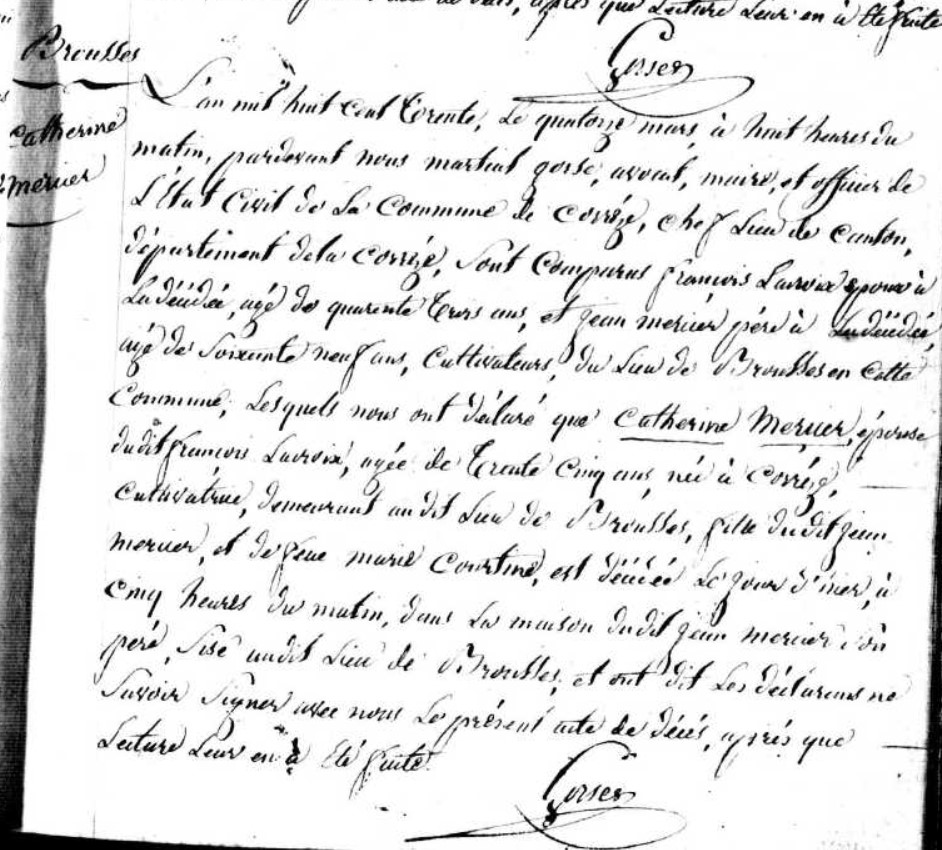 après que Lecture Leur en à été faite
Brousses
Gorse
Catherine
Mercier
L'an mil huit cent trente, Le quatorze mars, à huit heures du
matin, pardevant nous martial gorse, avocat, maire, et officier de
L'état Civil de La Commune de Corrèze, chef Lieu de Canton,
département dela Corrèze, Sont Comparus françois Lacroix époux à
La décédée, agé de quarente trois ans, et jean mercier père à La décédée,
agé de Soixante neuf ans, Cultivateurs, du Lieu de Brousses en Cette
Commune, Lesquels nous ont déclaré que Catherine Mercier, épouse
dudit françois Lacroix, agée de Trente Cinq ans, née à Corrèze,
Cultivatrice, demeurant audit Lieu de Brousses, fille dudit jean
mercier, et de feue marie Courtine, est décédée Le jour d'hier, à
Cinq heures du matin, dans La maison dudit jean mercier son
père, Sise audit Lieu de Brousses, et ont dit Les déclarens ne
Savoir Signer avec nous Le présent acte de décés, après que
Lecture Leur en à été faite.
Gorse